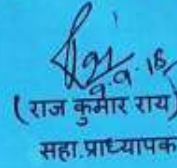 (राज कुमार राय)
सहा.प्राध्यापक